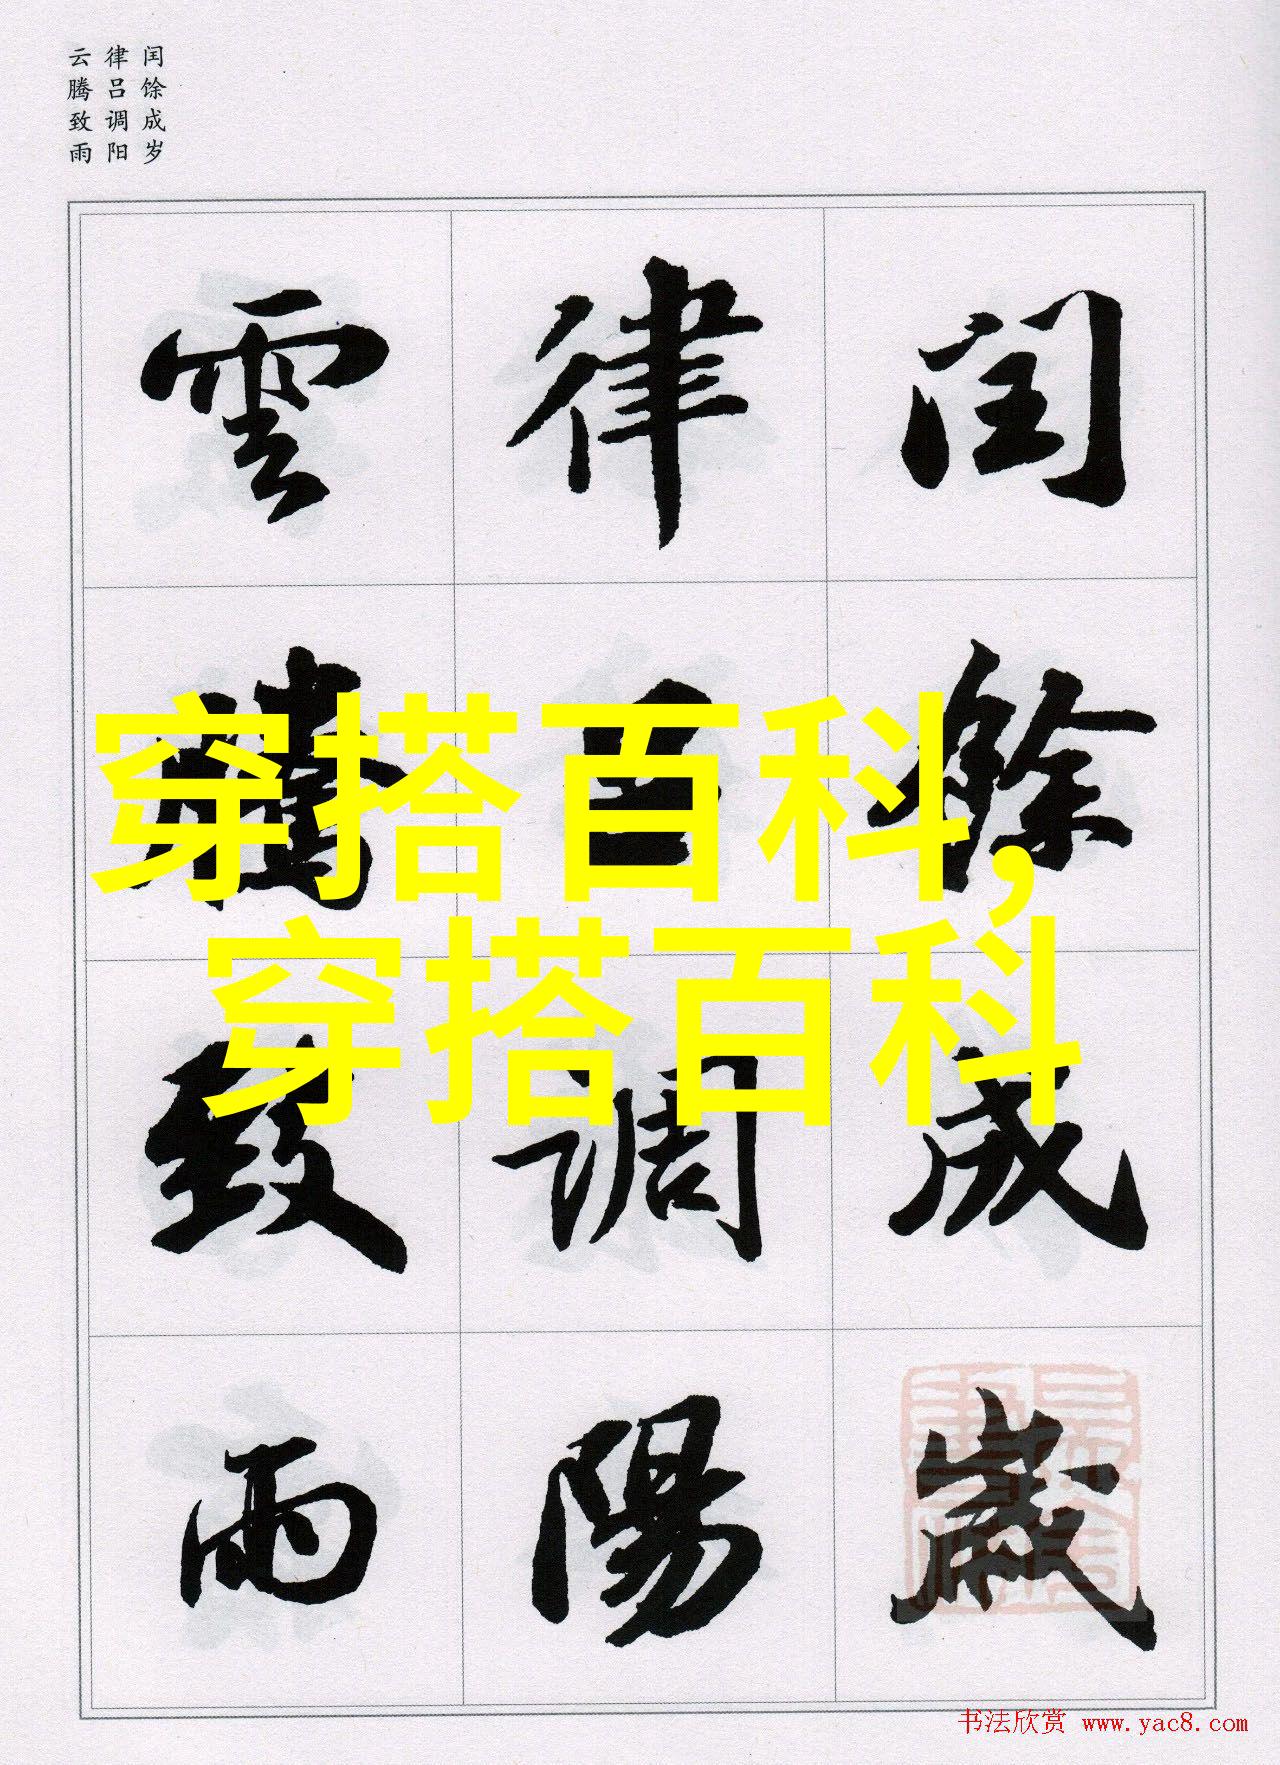 闰馀成岁
律吕调阳
云腾致雨
穿搭百科,
穿搭百科
闰餘成歲
律吕調陽
雲騰致雨
书法欣赏 www.yac8.com